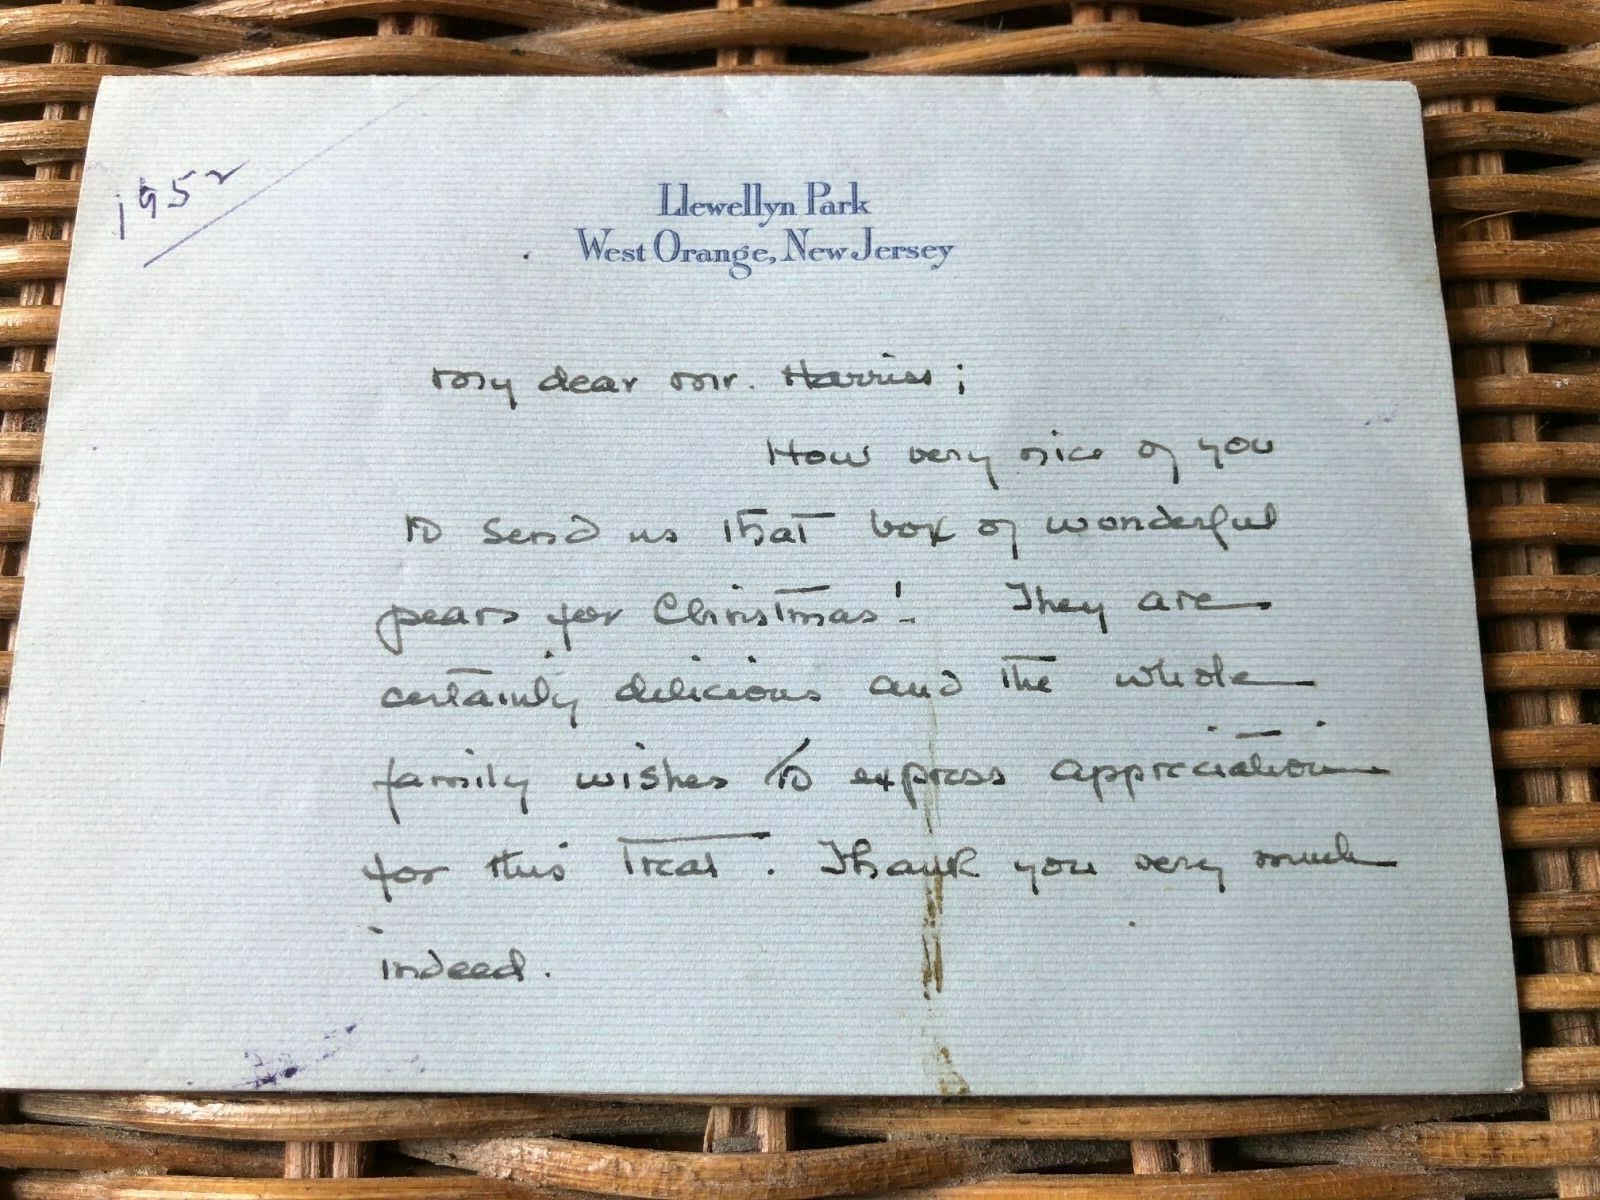 1952
Llewellyn Park
West Orange, New Jersey
My dear Mr. Harriss;
How very nice of you
to send us that box of wonderful
pears for Christmas! They are
certainly delicious and the whole
family wishes to express appreciation
for this treat. Thank you very much
indeed.